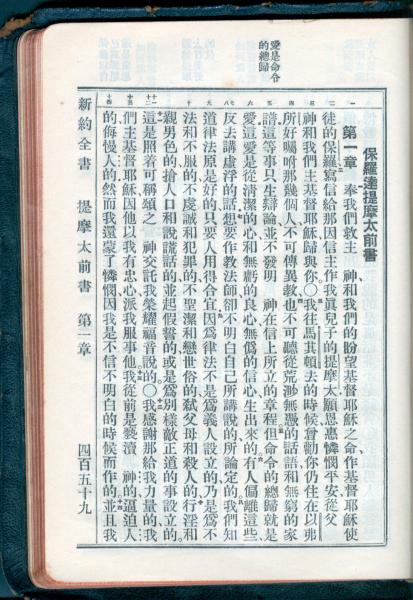 愛是命令
的總歸
保羅達提摩太前書
第一章 奉我們救主 神和我們的盼望基督耶穌之命作基督耶穌使
徒的保羅寫信給那因信主作我眞兒子的提摩太願恩惠憐憫平安從父
神和我們主基督耶穌歸與你〇我往馬其頓去的時候曾勸你仍住在以弗
所好囑咐那幾個人不可傳異敎也不可聽從荒渺無憑的話語和無窮的家
譜這等事只生辯論並不發明 神在信上所立的章程但命令的總歸就是
愛這愛是從清潔的心和無虧的良心無僞的信心生出來的有人偏離這些
反去講虛浮的話想要作敎法師卻不明白自己所講說的所論定的我們知
道律法原是好的只要人用得合宜因爲律法不是爲義人設立的乃是爲不
法和不服的不虔誠和犯罪的不聖潔和戀世俗的弒父母和殺人的行淫和
親男色的搶人口和說謊話的並起假誓的或是爲別樣敵正道的事設立的
這是照着可稱頌之 神交託我榮耀福音說的〇我感謝那給我力量的我
們主基督耶穌因他以我有忠心派我服事他我從前是褻瀆 神的逼迫人
的侮慢人的然而我還蒙了憐憫因我是不信不明白的時候而作的並且我
新約全書 提摩太前書 第一章 四百五十九